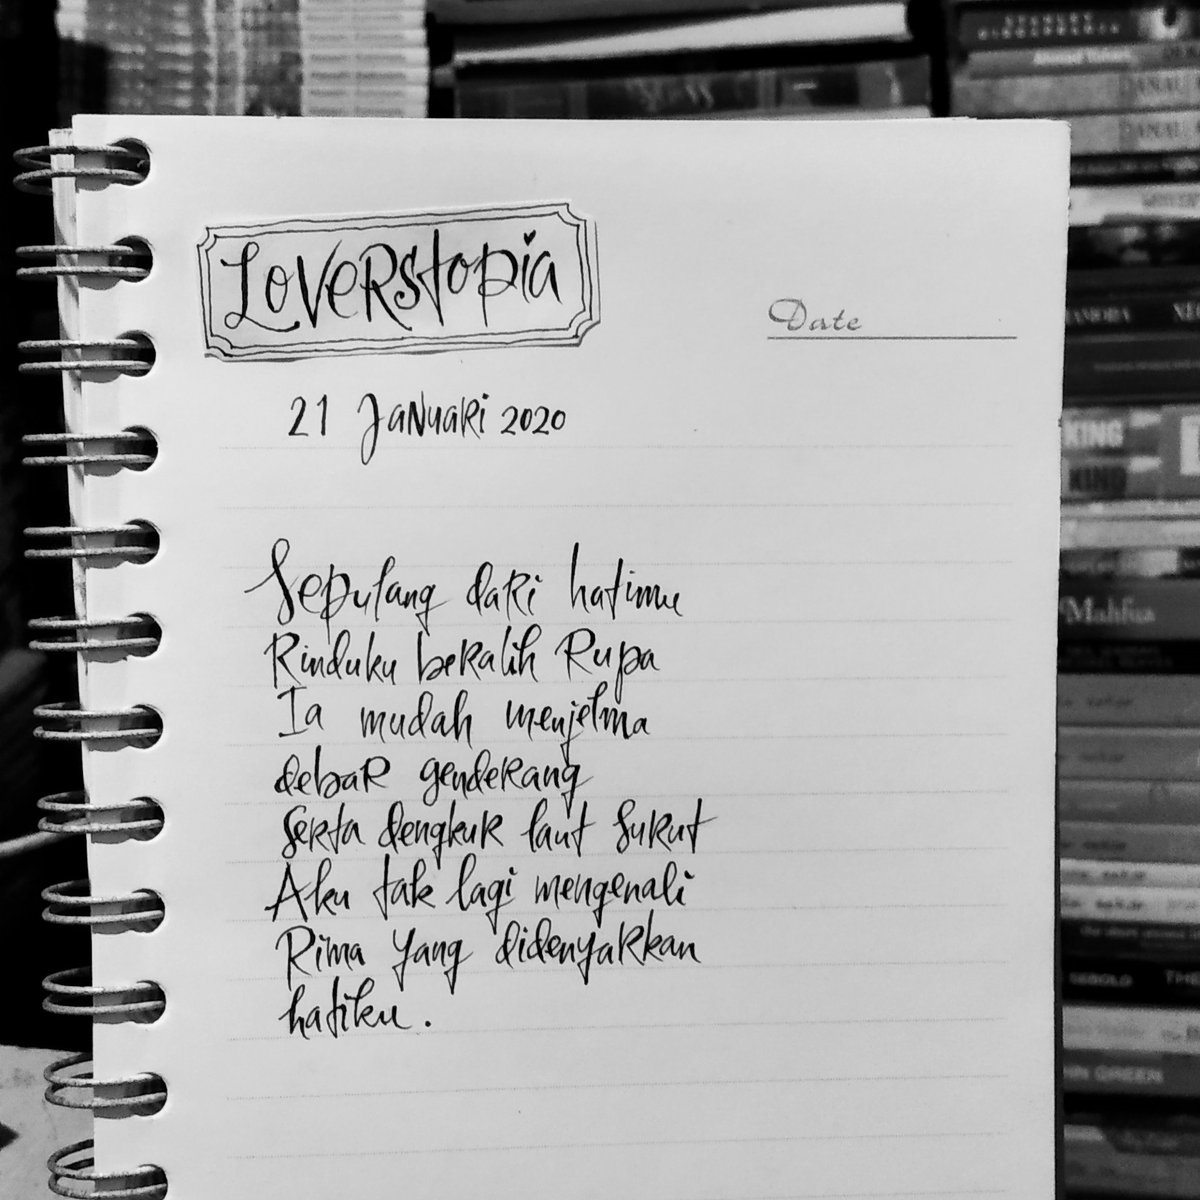 Loverstopia
Date
21 Januari 2020
Sepulang dari hatimu
Rinduku beralih Rupa
Ia mudah menjelma
debar genderang
serta dengkur laut surut
Aku tak lagi mengenali
Rima yang didenyarkan
hatiku.
KING
KING
Mahfuz
SEBOLD
HN GREEN